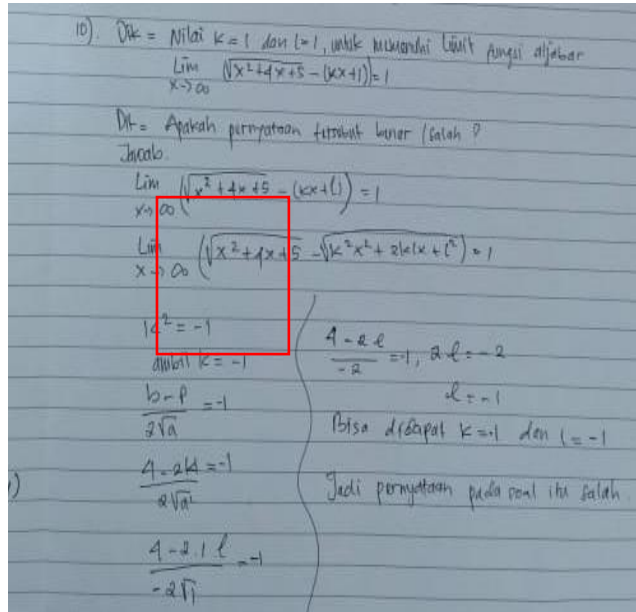 10). Dik = Nilai k = 1 dan l = 1, untuk memenuhi limit fungsi aljabar
Lim x→∞ √x²+4x+5 - (kx+1)) = 1
Dit = Apakah pernyataan tersebut benar / salah ?
Jawab.
Lim x→∞ (√x²+4x+5 - (kx+l)) = 1
Lim x→∞ (√x²+4x+5 - √k²x²+2klx+l²) = 1
k² = -1
ambil k = -1
b-p / 2√a = -1
4-2kl / 2√a² = -1
4-2.1 l / -2√1 = -1
4-2l / -2 = -1, 2l = -2
l = -1
Bisa didapat k = -1 dan l = -1
Jadi pernyataan pada soal itu salah.
)